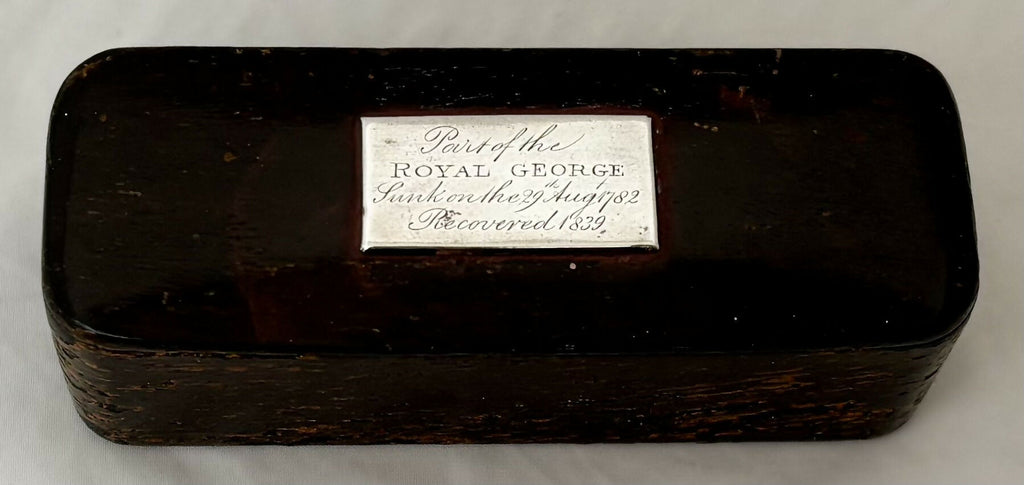 Part of the
ROYAL GEORGE
Sunk on the 29th Aug 1782
Recovered 1839